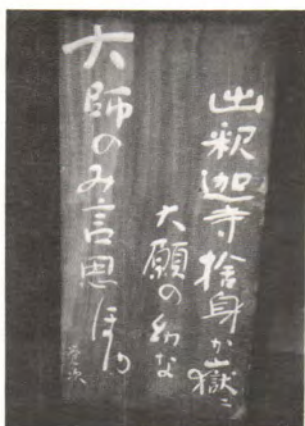 出釈迦寺捨身が嶽に
大願の幼な
大師のみ言思ほゆ